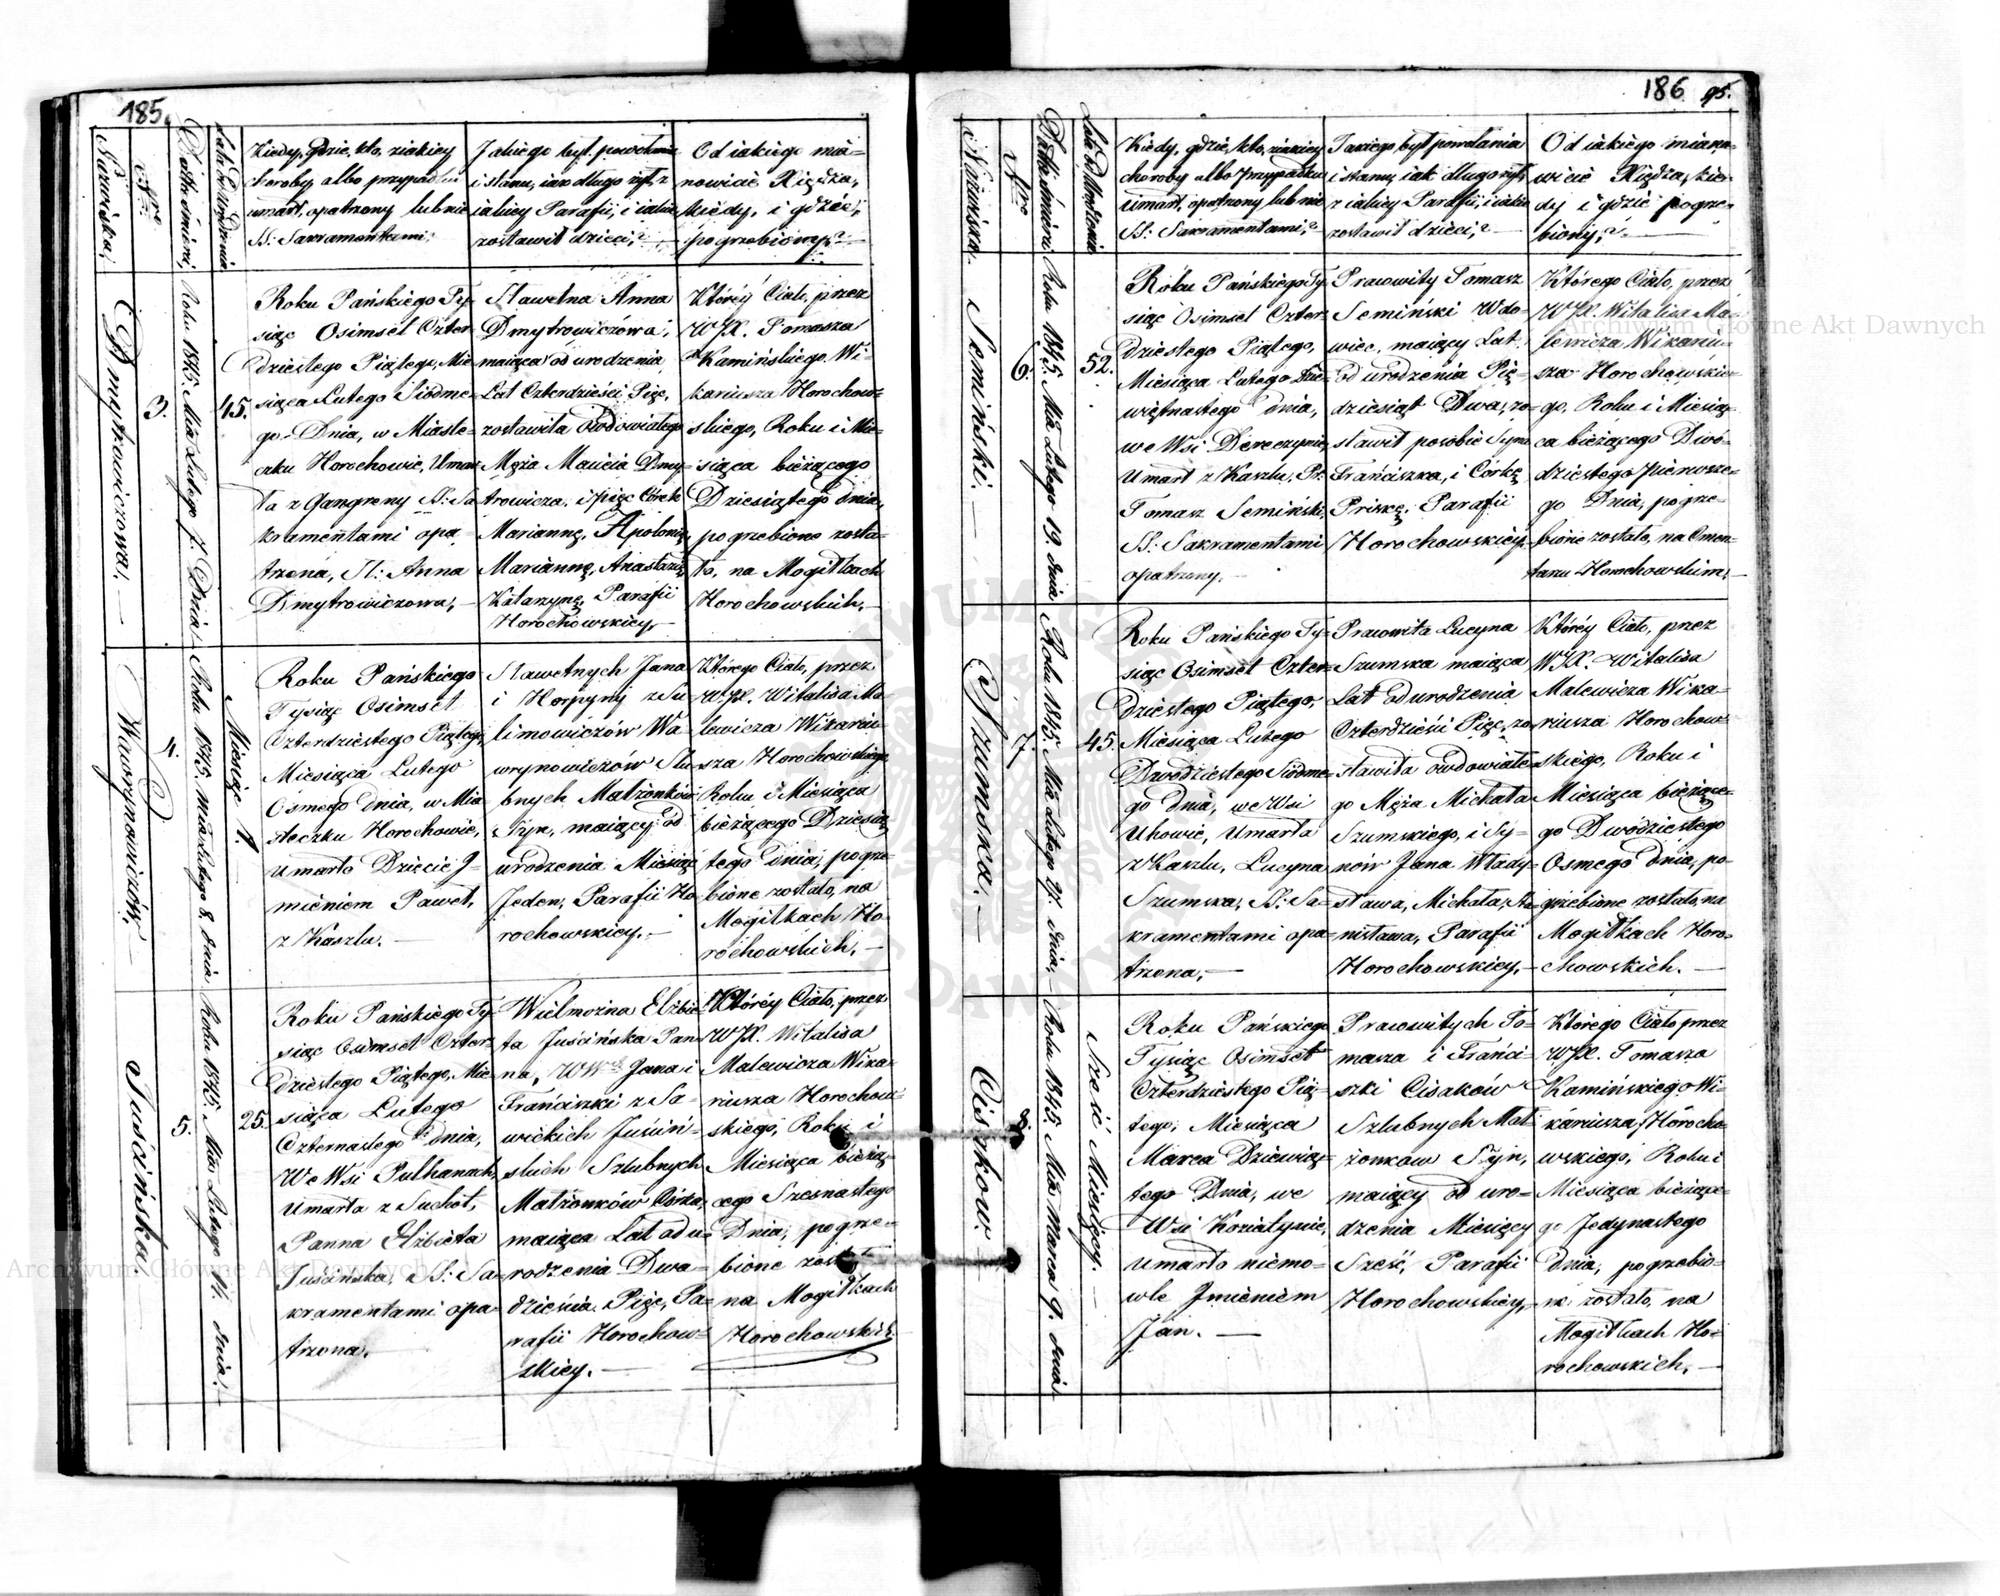 185.
Nazwiska.
Nro
Data śmierci.
Lata Od urodzenia
Kiedy, gdzie, kto, z iakiey
choroby albo przypadku
umarł, opatrzony lub nie
SS: Sakramentami?
Jakiego był powołania
i stanu, iak długo żył, z
iakiey Parafii, i iakie
zostawił dzieci?
Od iakiego mia=
nowicie Xiędza,
kiedy, i gdzie
pogrzebiony?
Dmytrowiczowa.
3.
Roku 1845. Mca Lutego 7. Dnia
45.
Roku Pańskiego Ty=
siąc Osimset Czter
dziestego Piątego, Mie
siąca Lutego Siódme=
go Dnia, w Miaste=
czku Horochowie, Umar
ła z Gangreny SS: Sa
kramentami opa
trzona, Anna
Dmytrowiczowa.
Sławetna Anna
Dmytrowiczowa,
maiąca od urodzenia
Lat Czterdzieści Pięć,
zostawiła Owdowiałego
Męża Macieia Dmy=
trowicza, i pięc Córek
Mariannę, Apolonię,
Mariannę, Anastazię,
Katarzynę, Parafii
Horochowskiey.
Któréy Ciało, przez
WJX. Tomasza
Kamińskiego Wi=
kariusza Horochow=
skiego, Roku i Mie=
siąca bieżącego
Dziesiątego dnia,
pogrzebione zosta=
ło, na Mogiłkach
Horochowskich.
Wawrynowiczów.
4.
Roku 1845. Mca Lutego 8. dnia
Miesiąc 1.
Roku Pańskiego
Tysiąc Osimset
Czterdziestego Piątego,
Miesiąca Lutego
Osmego dnia, w Mia
steczku Horochowie,
Umarło Dziecie J=
mieniem Paweł,
z Kaszlu.
Sławetnych Jana
i Horpyny z Su
limowiczów Wa=
wrynowiczów Slu
bnych Małżonków
Syn, maiący od
urodzenia Miesiąc
Jeden, Parafii Ho
rochowskiey.
Którego Ciało, przez
WJX. Witalisa Ma=
lewicza Wikariu=
sza Horochowskiego,
Roku i Miesiąca
bieżącego Dziesią
tego dnia, pogrze=
bione zostało, na
Mogiłkach Ho=
rochowskich.
Juścińska.
5.
Roku 1845. Mca Lutego 14. dnia.
25.
Roku Pańskiego Ty=
siąc Osimset Czter=
dziestego Piątego, Mie=
siąca Lutego
Czternastego dnia,
We Wsi Pulhanach,
Umarła z Suchot,
Panna Elżbieta
Juścińska, SS: Sa=
kramentami opa=
trzona.
Wielmożna Elżbie=
ta Juścińska Pan=
na, WW Jana i
Franciszki z Sa=
wickich Juściń=
skich Szlubnych
Małżonków Córka,
maiąca Lat od u=
rodzenia Dwa=
dzieścia Pięć, Pa=
rafii Horochow=
skiey.
Któréy Ciało, przez
WJX. Witalisa
Malewicza Wika=
riusza Horochow=
skiego, Roku i
Miesiąca bieżą=
cego Szesnastego
Dnia, pogrze=
bione zostało
na Mogiłkach
Horochowskich.
186
95.
Nazwiska.
Nro
Data śmierci
Lata Od Urodzenia
Kiedy, gdzie, kto, z iakiey
choroby albo przypadku
Umarł, opatrzony lub nie
SS: Sakramentami?
Jakiego był powołania
i stanu, iak długo żył,
z iakiey Parafii, i iakie
zostawił dzieci?
Od iakiego miano=
wicie Xiędza, kie=
dy i gdzie pogrze=
biony?
Semiński.
6.
Roku 1845. Mca Lutego 19. dnia
52.
Roku Pańskiego Ty=
siąc Osimset Czter=
dziestego Piątego,
Miesiąca Lutego Dzie=
więtnastego dnia,
we Wsi Dereczynie,
Umarł z Kaszlu, Pr:
Tomasz Semiński,
SS: Sakramentami
opatrzony.
Pracowity Tomasz
Semiński Wdo=
wiec, maiący Lat
od urodzenia Pię=
dziesiąt Dwa, zo=
stawił po sobie Syna
Franciszka, i Córkę
Priskę, Parafii
Horochowskiey.
Którego Ciało, przez
WJX. Witalisa Ma=
lewicza Wikariu=
sza Horochowskie=
go, Roku i Miesią=
ca bieżącego Dwó=
dziestego Pierwsze=
go Dnia, pogrze=
bione zostało, na Cmen=
tarzu Horochowskim.
Szumska.
7.
Roku 1845. Mca Lutego 27. dnia.
45.
Roku Pańskiego Ty=
siąc Osimset Czter=
dziestego Piątego,
Miesiąca Lutego
Dwódziestego Siódme=
go dnia, we Wsi
Uhowie, Umarła
z Kaszlu, Lucyna
Szumska, SS: Sa=
kramentami opa=
trzona.
Pracowita Lucyna
Szumska maiąca
Lat od urodzenia
Czterdzieści Pięć, zo
stawiła owdowiałe=
go Męża Michała
Szumskiego, i Sy=
nów Jana Włady=
sława, Michała, Sta=
nisława, Parafii
Horochowskiey.
Któréy Ciało, przez
WJX. Witalisa
Malewicza Wika=
riusza Horochow=
skiego, Roku i
Miesiąca bieżące=
go Dwódziestego
Osmego Dnia, po=
grzebione zostało, na
Mogiłkach Horo=
chowskich.
Cisakow.
8.
Roku 1845. Mca Marca 9. dnia
Sześć Miesięcy.
Roku Pańskiego
Tysiąc Osimset
Czterdziestego Pią=
tego, Miesiąca
Marca Dziewią=
tego Dnia, we
Wsi Koziatynie,
Umarło niemo=
wle Jmieniem
Jan.
Pracowitych To=
masza i Franci=
szki Cisaków
Szlubnych Mał=
żonków Syn,
maiący od uro=
dzenia Miesięcy
Sześć, Parafii
Horochowskiey.
Którego Ciało przez
WJX. Tomasza
Kamińskiego Wi=
kariusza Horocho=
wskiego, Roku i
Miesiąca bieżące=
go Jedynastego
dnia, pogrzebio=
ne zostało, na
Mogiłkach Ho=
rochowskich.
Archiwum Główne Akt Dawnych
Archiwum Główne Akt Dawnych